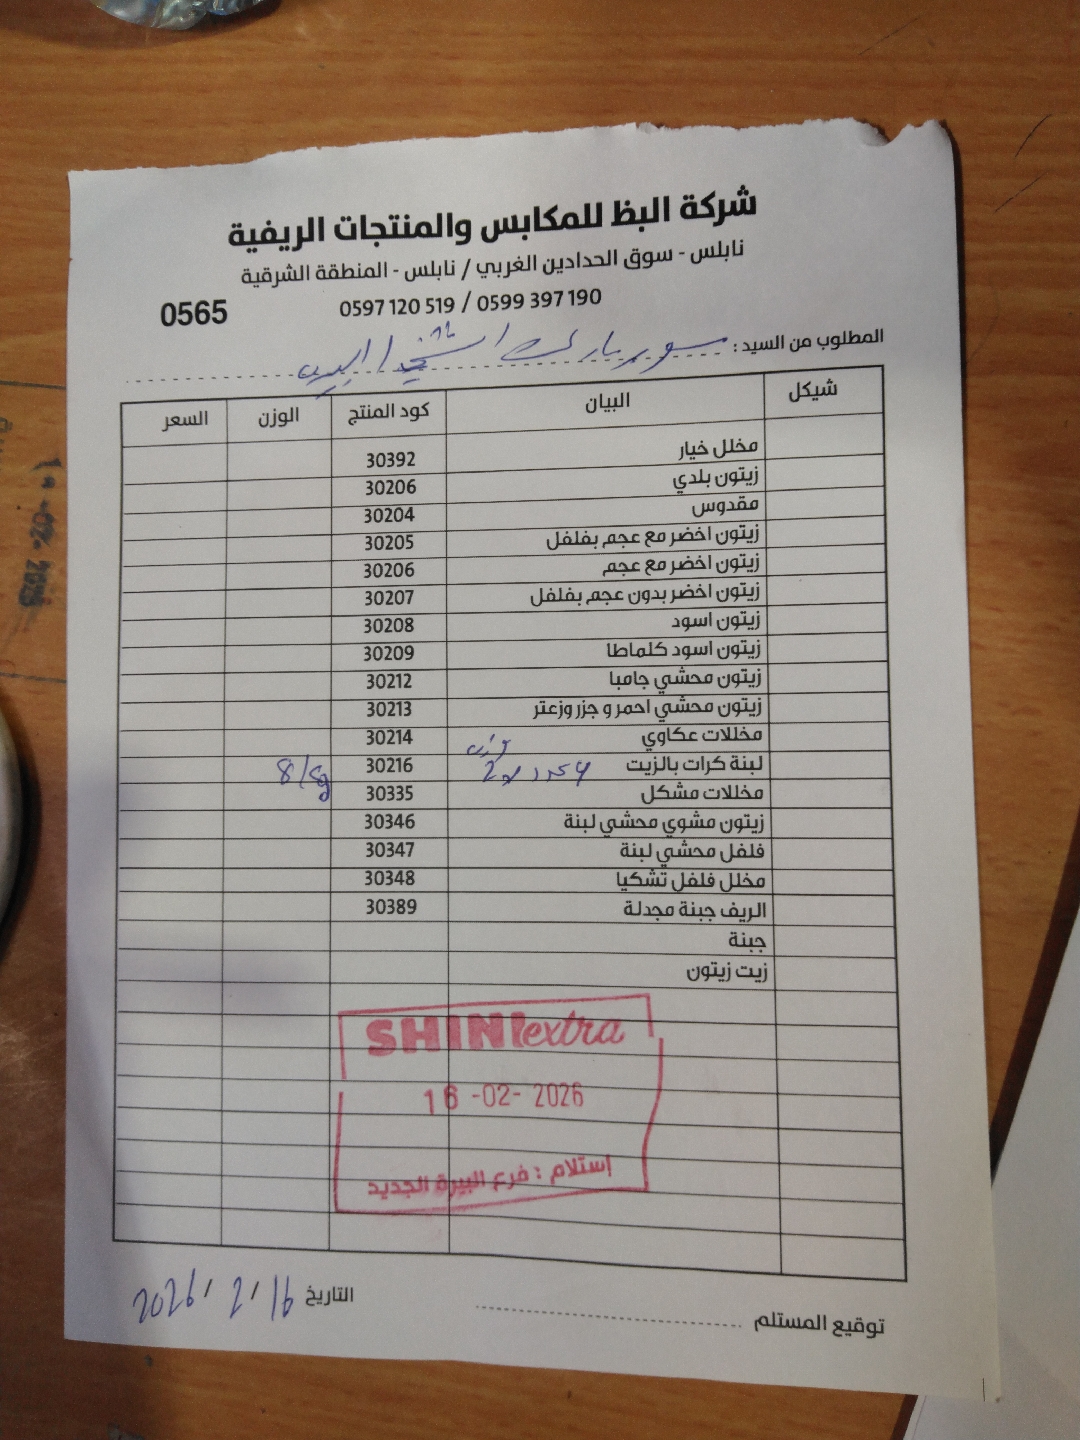 شركة البظ للمكابس والمنتجات الريفية
نابلس - سوق الحدادين الغربي / نابلس - المنطقة الشرقية
0597 120 519 / 0599 397 190
0565
المطلوب من السيد : سوبر ماركت الشني اكسترا البيرة
شيكل البيان كود المنتج الوزن السعر
مخلل خيار 30392
زيتون بلدي 30206
مقدوس 30204
زيتون اخضر مع عجم بفلفل 30205
زيتون اخضر مع عجم 30206
زيتون اخضر بدون عجم بفلفل 30207
زيتون اسود 30208
زيتون اسود كلماطا 30209
زيتون محشي جامبا 30212
زيتون محشي احمر و جزر وزعتر 30213
مخللات عكاوي 30214
لبنة كرات بالزيت 30216
مخللات مشكل 30335
زيتون مشوي محشي لبنة 30346
فلفل محشي لبنة 30347
مخلل فلفل تشكيا 30348
الريف جبنة مجدلة 30389
جبنة
زيت زيتون
SHINI extra
16 -02- 2026
إستلام : فرع البيرة الجديد
التاريخ 16 / 2 / 2026
توقيع المستلم